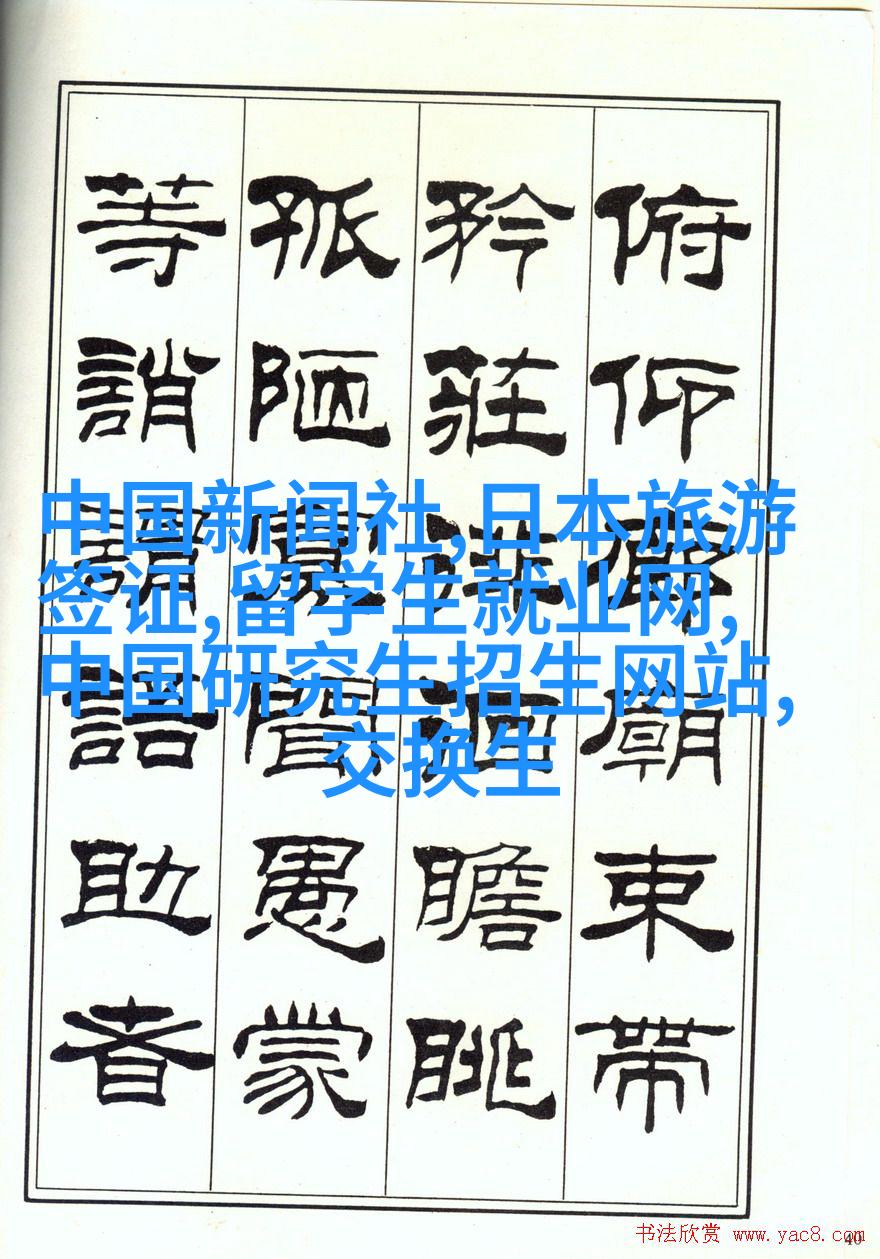 俯仰廊廟束帶
矜莊徘徊瞻眺
孤陋寡聞愚蒙
等誚謂語助者
中国新闻社,日本旅游
签证,留学生就业网,
中国研究生招生网站,
交换生
书法欣赏 www.yac8.com
40